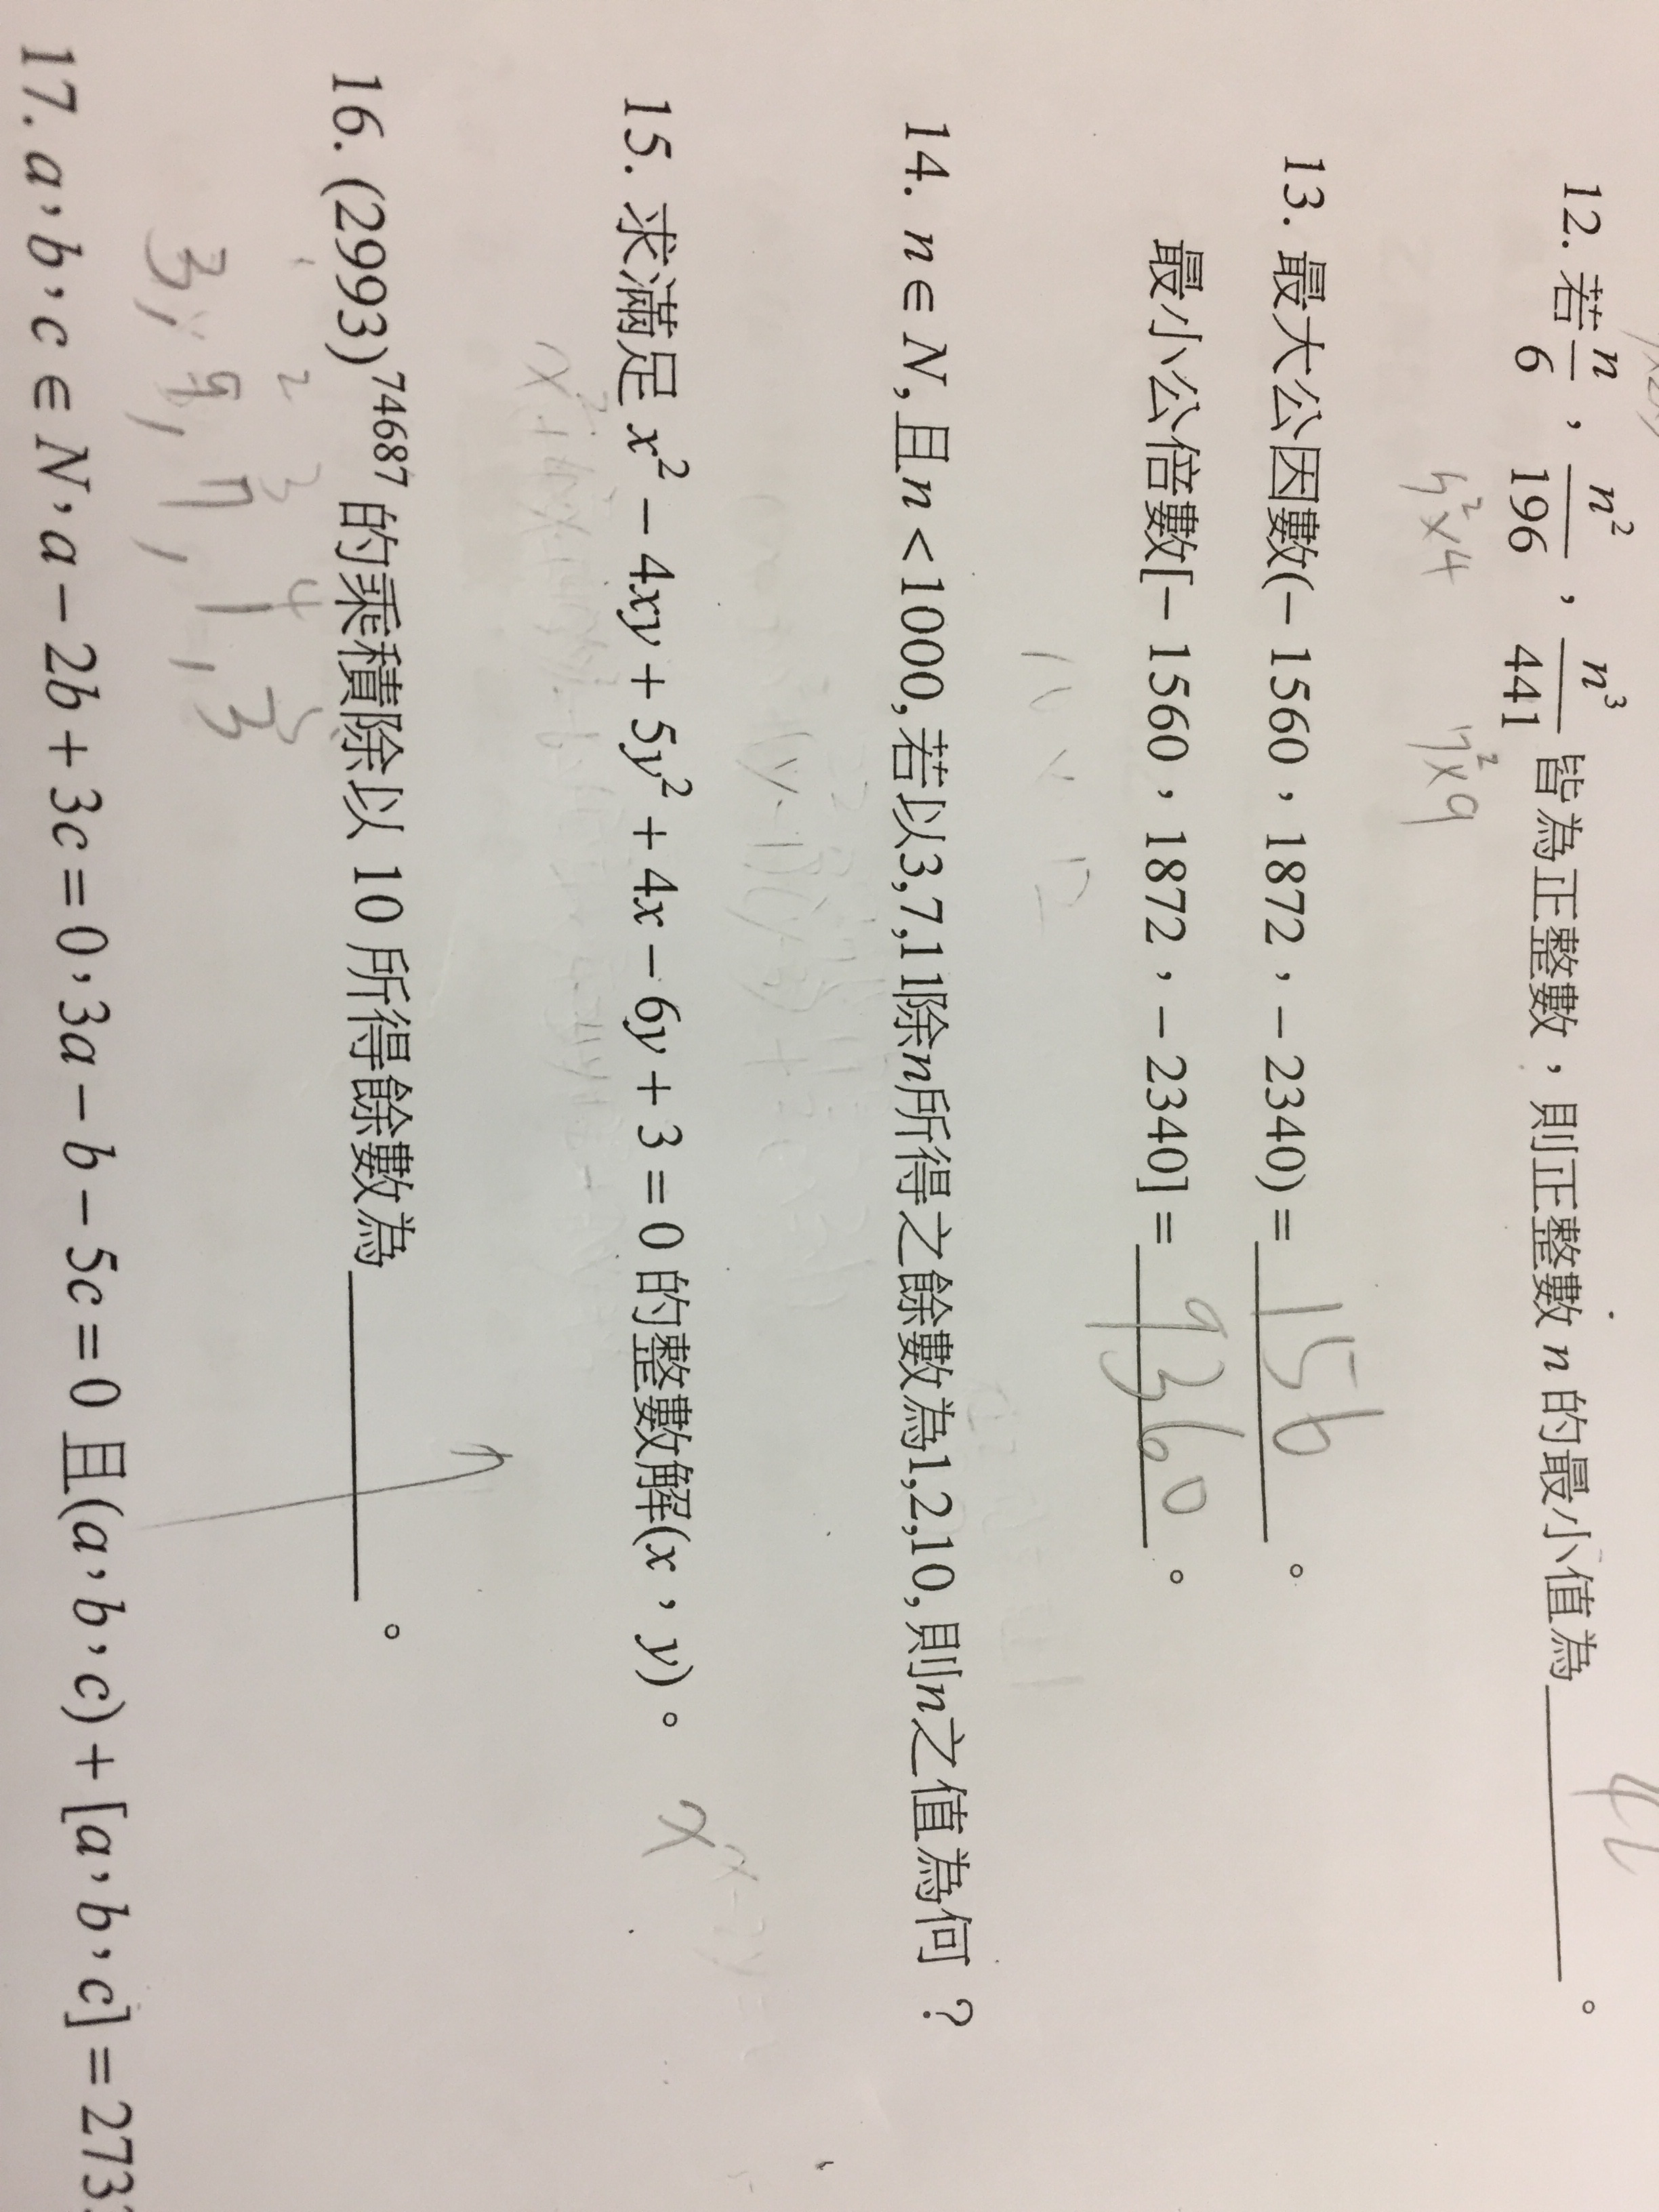 12. 若 n/6，n²/196，n³/441 皆為正整數，則正整數 n 的最小值為______。 42
7²×4 7²×9
13. 最大公因數(−1560，1872，−2340)= 156 。
最小公倍數[−1560，1872，−2340]= 9360 。
14. n∈N,且n<1000,若以3,7,11除n所得之餘數為1,2,10,則n之值為何？
15. 求滿足 x²−4xy+5y²+4x−6y+3=0 的整數解(x，y)。
16. (2993)⁷⁴⁶⁸⁷ 的乘積除以 10 所得餘數為______。 7
2 3 4
3, 9, 7, 1, 3
17. a，b，c∈N，a−2b+3c=0，3a−b−5c=0 且(a，b，c)+[a，b，c]=273